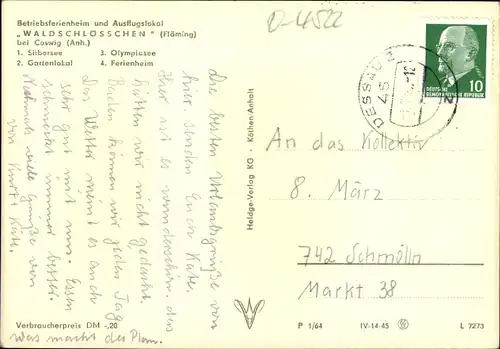 Betriebsferienheim und Ausflugslokal
„WALDSCHLÖSSCHEN" (Fläming)
bei Coswig (Anh.)
1. Silbersee 3. Olympiasee
2. Gartenlokal 4. Ferienheim
D-4522
DESSAU 2
45
DEUTSCHE
DEMOKRATISCHE REPUBLIK
10
Die besten Urlaubsgrüße von
hier senden Euch Käte.
Hier ist es wunderschön. das
hätten wir nicht gedacht.
Baden können wir jeden Tag
Das Wetter meint es auch
sehr gut mit uns. Essen
schmeckt immer besser.
Nochmals viele Grüße von
von Kurt + Käte.
was macht der Plan.
Heldge-Verlag KG · Köthen/Anhalt
An das Kollektiv
8. März
742 Schmölln
Markt 38
Verbraucherpreis DM -,20
P 1/64 IV-14-45 L 7273